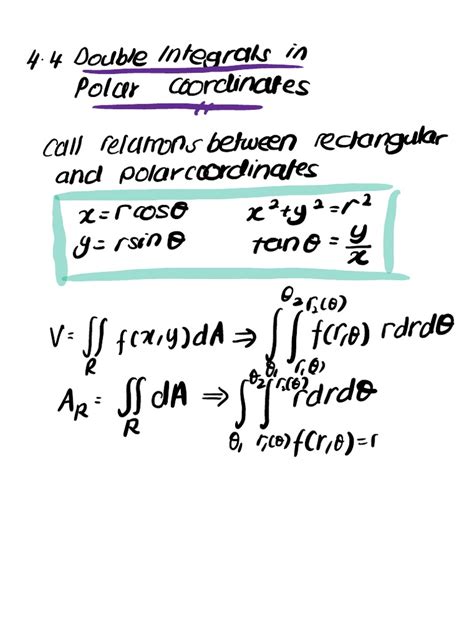 4.4 Double Integrals in
Polar Coordinates
Call relations between rectangular
and polar coordinates
x = r cosθ x² + y² = r²
y = r sin θ tan θ = y/x
V = ∬_R f(x,y) dA ⇒ ∫_θ₁^θ₂ ∫_r₁(θ)^r₂(θ) f(r,θ) r dr dθ
A_R = ∬_R dA ⇒ ∫_θ₁^θ₂ ∫_r₁(θ)^r₂(θ) r dr dθ
f(r,θ) = r